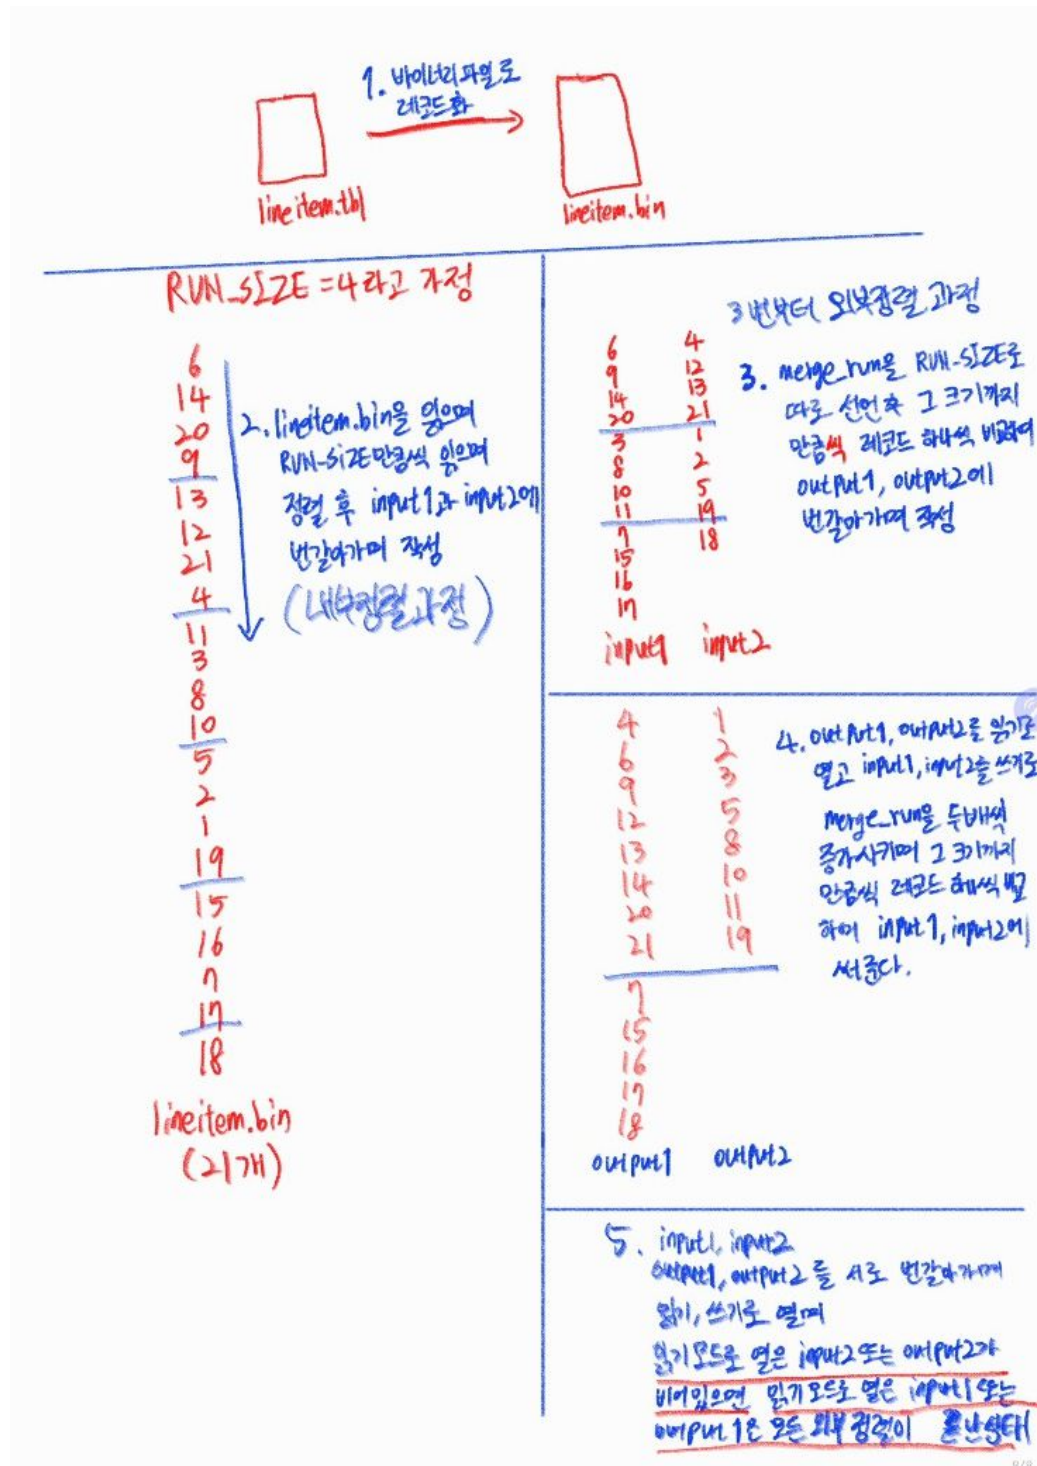 1. 바이너리파일로
레코드화
lineitem.tbl
lineitem.bin
RUN_SIZE = 4 라고 가정
6
14
20
9
13
12
21
4
11
3
8
10
5
2
1
19
15
16
7
17
18
lineitem.bin
(21개)
2. lineitem.bin을 읽으며
RUN-SIZE만큼씩 읽으며
정렬 후 input1과 input2에
번갈아가며 작성
(내부정렬과정)
3번부터 외부정렬 과정
6 4
9 12
14 13
20 21
3 1
8 2
10 5
11 19
7 18
15
16
17
input1 input2
3. merge_run을 RUN-SIZE로
따로 선언 후 그 크기까지
만큼씩 레코드 하나씩 비교하여
output1, output2에
번갈아가며 작성
4 1
6 2
9 3
12 5
13 8
14 10
20 11
21 19
7
15
16
17
18
output1 output2
4. output1, output2를 읽기로
열고 input1, input2를 쓰기로
merge_run을 두배씩
증가시키며 그 크기까지
만큼씩 레코드 하나씩 비교
하며 input1, input2에
써준다.
5. input1, input2
output1, output2 를 서로 번갈아가며
읽기, 쓰기로 열며
읽기모드로 열은 input2 또는 output2가
비어있으면 읽기모드로 열은 input1 또는
output1은 모든 외부 정렬이 끝난상태